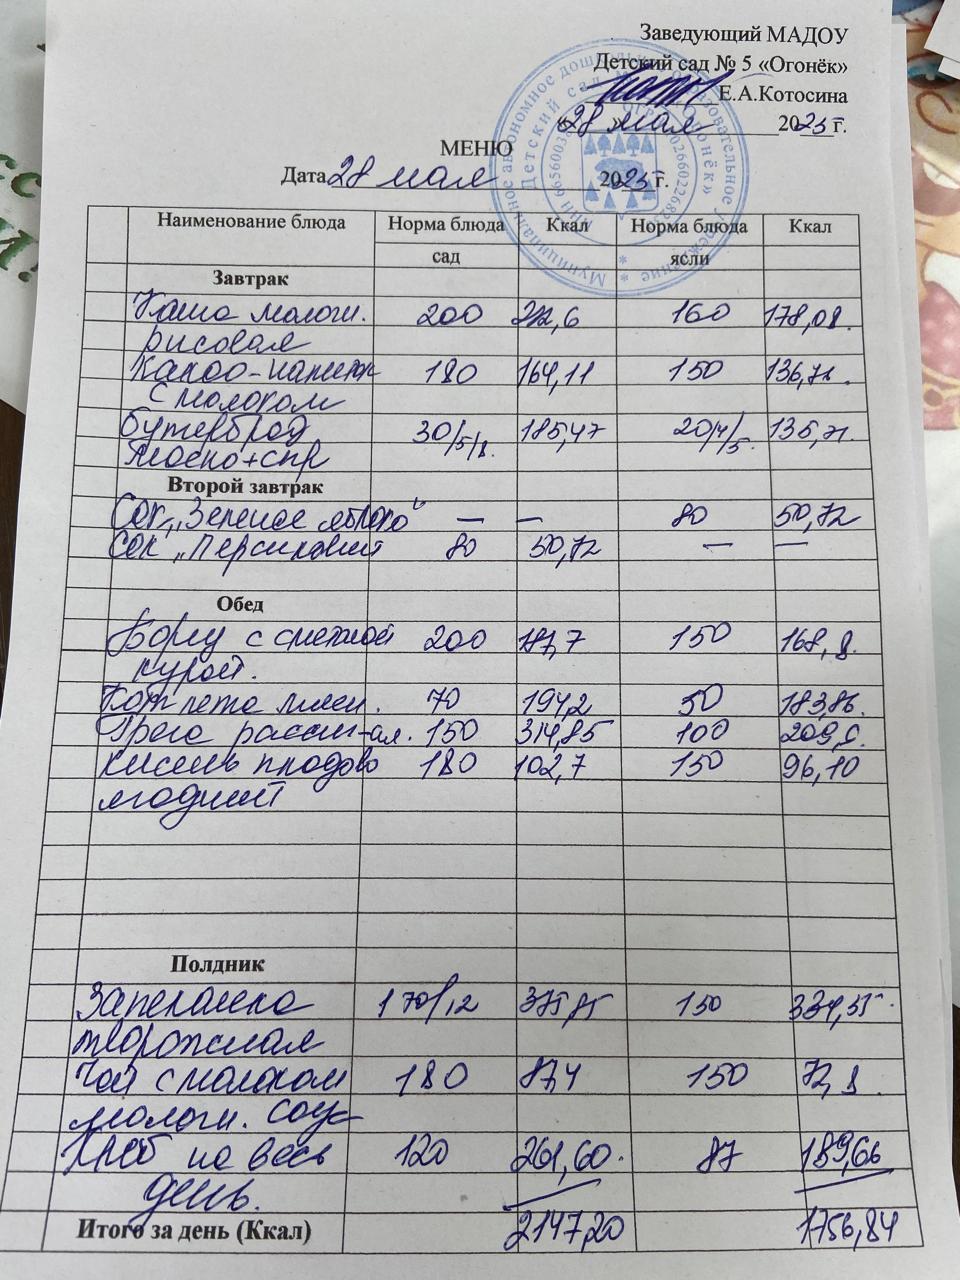 Заведующий МАДОУ
Детский сад № 5 «Огонёк»
Е.А.Котосина
«28» мая 2025 г.
МЕНЮ
Дата 28 мая 2025 г.
Наименование блюда Норма блюда Ккал Норма блюда Ккал
сад ясли
Завтрак
Каша молочн. 200 222,6 160 178,08.
рисовая
Какао-напиток 180 164,11 150 136,72.
с молоком
Бутерброд 30/5/8. 185,47 20/4/5. 135,71.
масло+сыр
Второй завтрак
Сок „Зеленое яблоко" — — 80 50,72
Сок „Персиковый 80 50,72 — —
Обед
Борщ с сметаной 200 187,7 150 168,8.
курой.
Котлета мясн. 70 194,2 50 183,86.
Греча рассып-ая. 150 314,85 100 209,9.
Кисель плодово 180 102,7 150 96,10
ягодный
Полдник
Запеканка 170/12 375,85 150 334,55.
творожная
Чай с молоком 180 87,4 150 72,8.
молочн. соус
Хлеб на весь 120 261,60. 87 189,66
день.
Итого за день (Ккал) 2147,20 1756,84